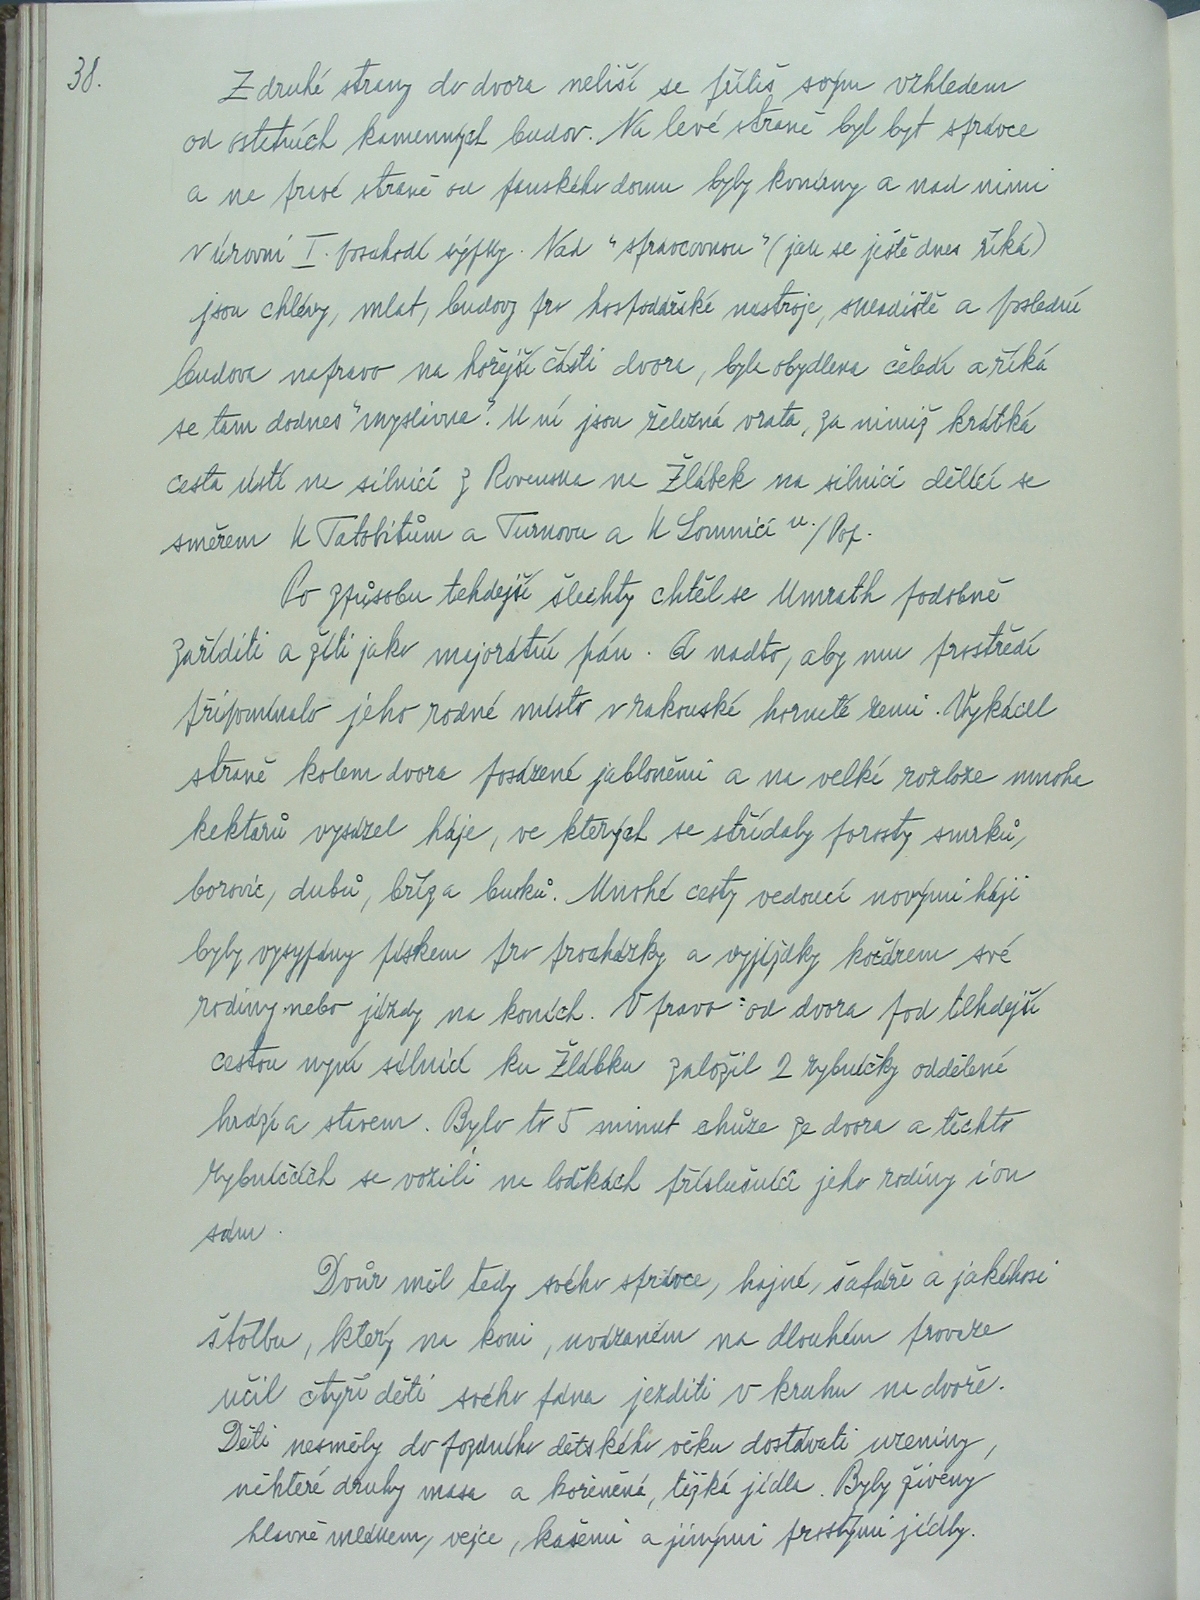 38.
Z druhé strany do dvora neliší se příliš svým vzhledem
od ostatních kamenných budov. Na levé straně byl byt správce
a na pravé straně od panského domu byly konírny a nad nimi
v úrovni I. poschodí sýpky. Nad "správcovnou" (jak se ještě dnes říká)
jsou chlévy, mlat, budovy pro hospodářské nástroje, skladiště a poslední
budova napravo na hořejší části dvora, byla obydlena čeledí a říká
se tam dodnes "myslivna". U ní jsou železná vrata, za nimiž krátká
cesta ústí na silnici z Rovenska na Žlábek na silnici dělící se
směrem k Tatobitům a Turnovu a k Lomnici n./Pop.
Po způsobu tehdejší šlechty chtěl se Umrath podobně
zaříditi a žíti jako majorátní pán. A nadto, aby mu prostředí
připomínalo jeho rodné místo v rakouské hornaté zemi. Vykácel
stráně kolem dvora posázené jabloněmi a na velké rozloze mnoha
hektarů vysázel háje, ve kterých se střídaly porosty smrků,
borovic, dubů, bříz a buků. Mnohé cesty vedoucí novými háji
byly vysypány pískem pro procházky a vyjíždky kočárem své
rodiny nebo jízdy na koních. V pravo od dvora pod tehdejší
cestou nyní silnicí ku Žlábku založil 2 rybníčky oddělené
hrází a stavem. Bylo to 5 minut chůze ze dvora a těchto
rybníčcích se vozili na loďkách příslušníci jeho rodiny i on
sám.
Dvůr měl tedy svého správce, hajné, šafáře a jakéhosi
štolbu, který na koni, uvázaném na dlouhém provaze
učil čtyři děti svého pána jezditi v kruhu na dvoře.
Děti nesměly do pozdního dětského věku dostávati uzeniny,
některé druhy masa a kořeněná, těžká jídla. Byly živeny
hlavně mlékem, vejce, kašemi a jinými prostými jídly.